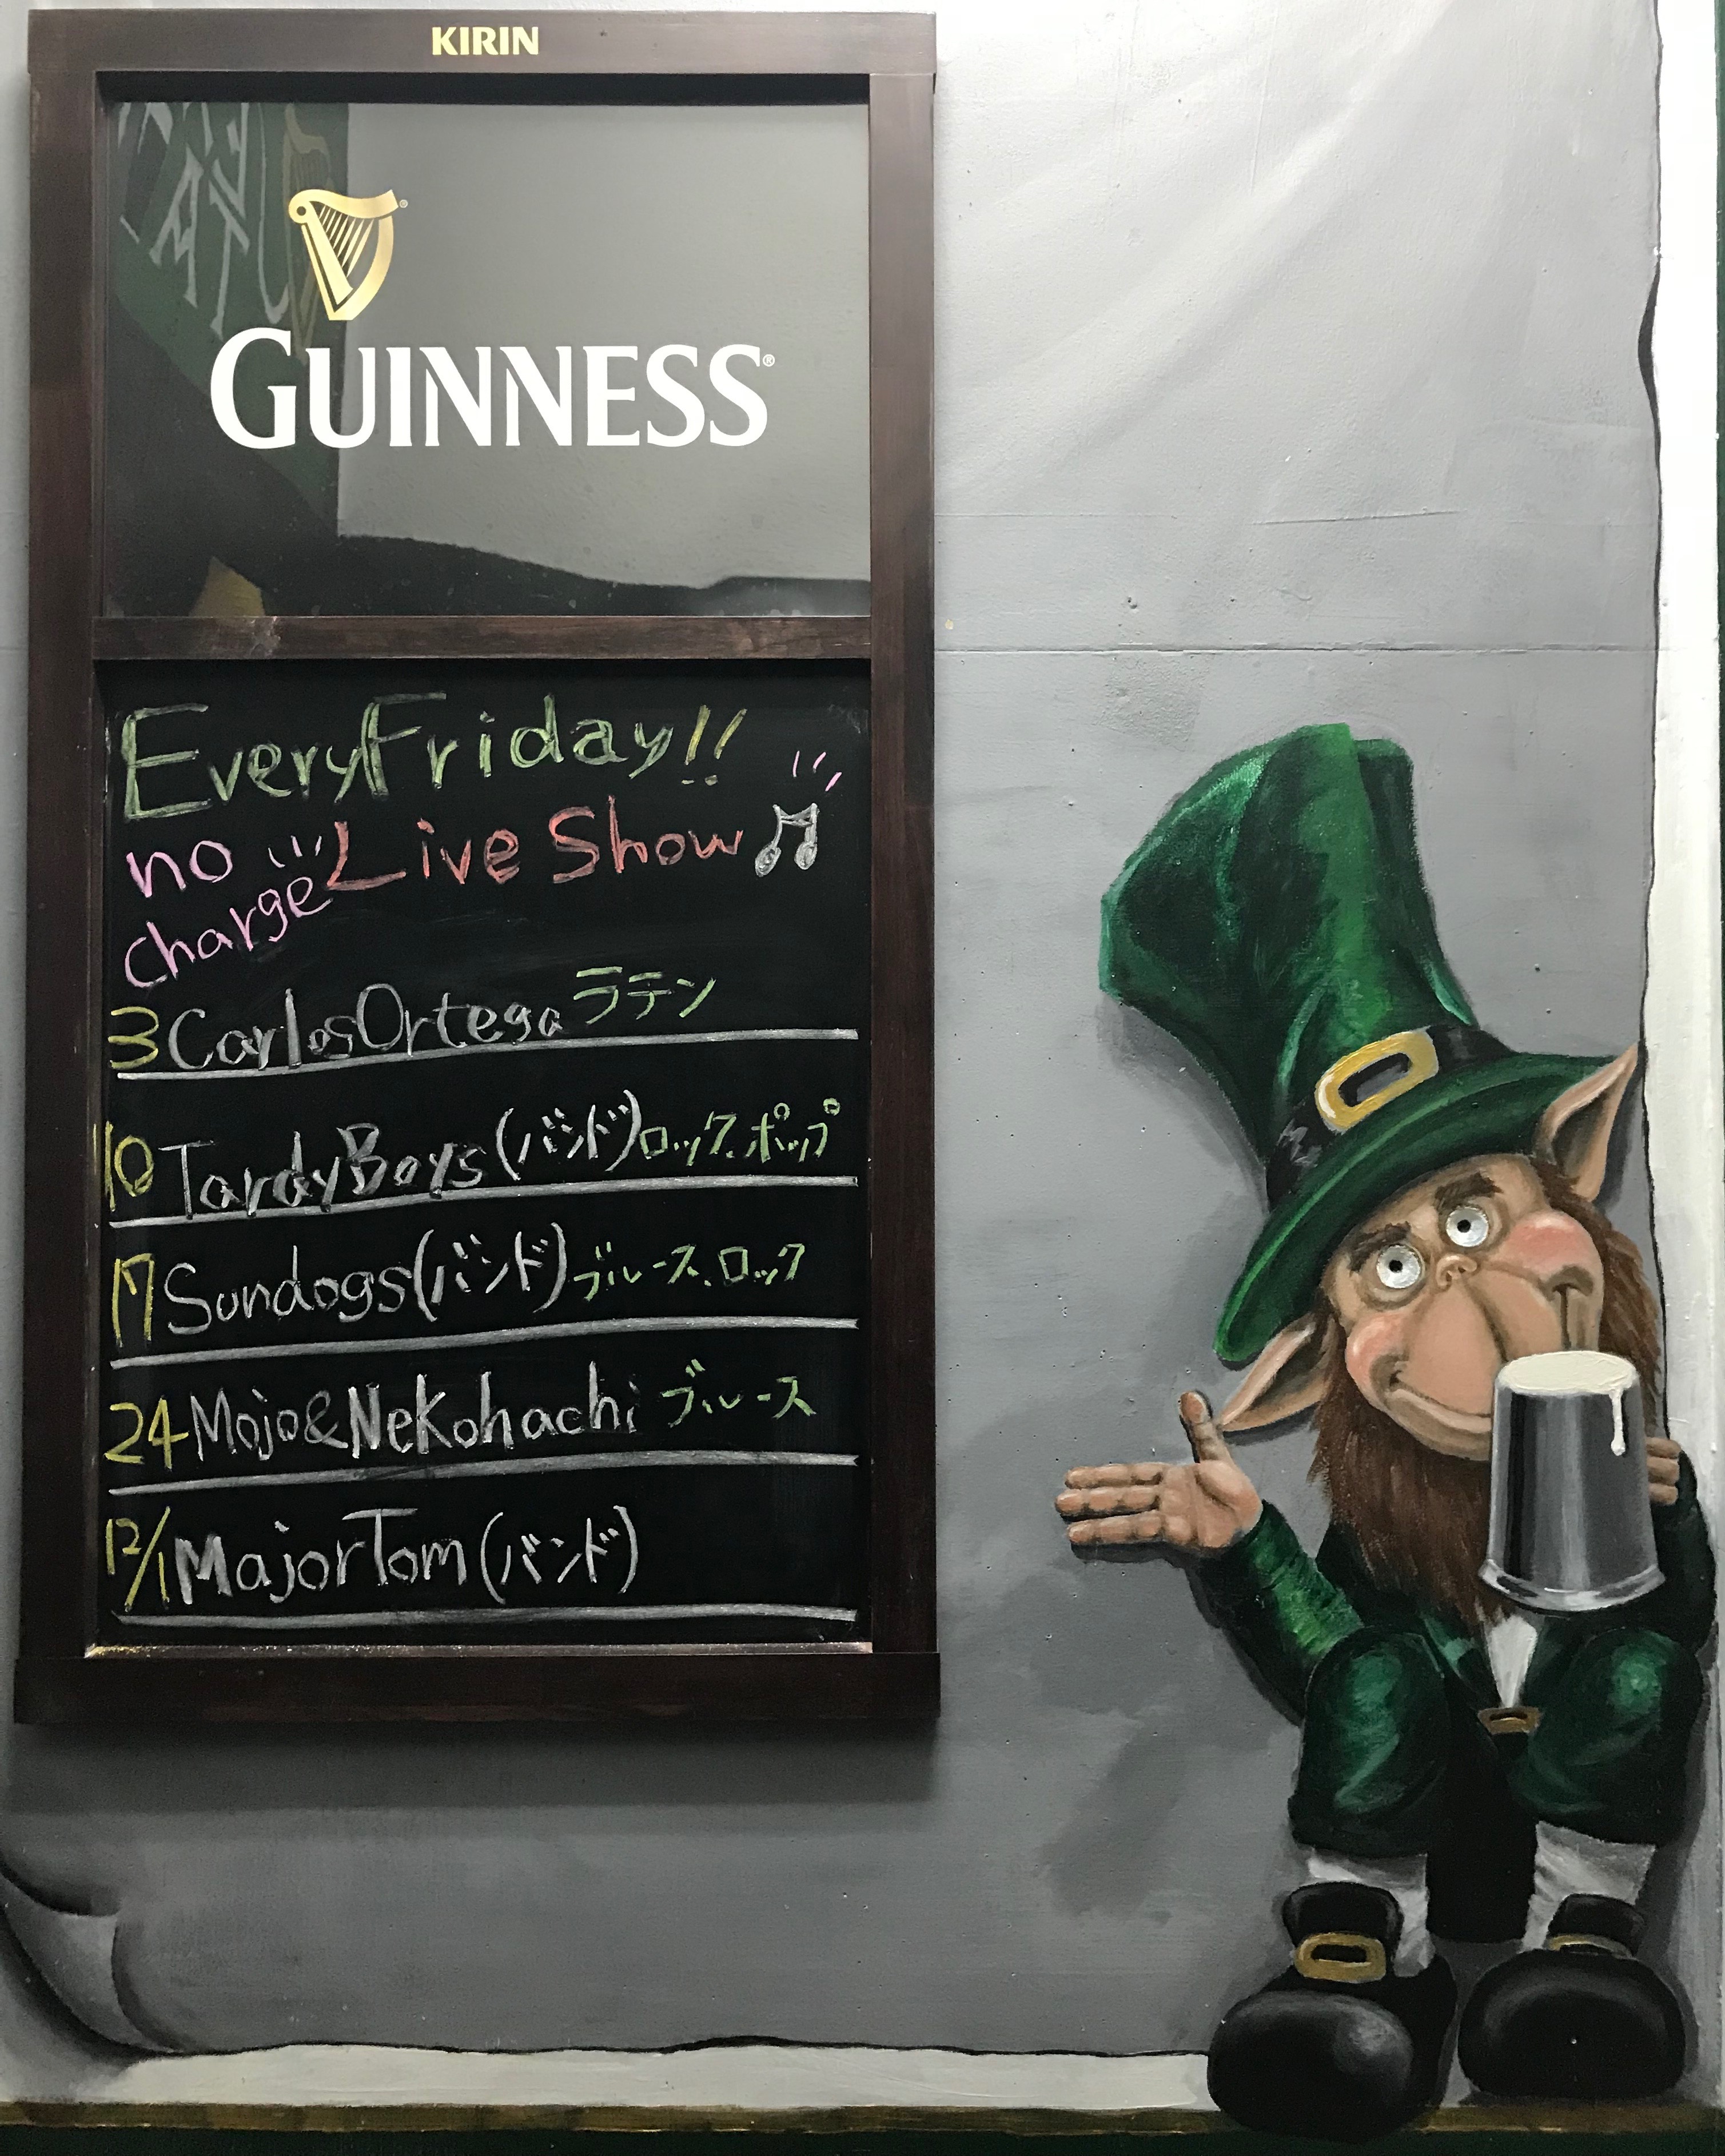 KIRIN
GUINNESS®
Every Friday!!
no charge Live Show
3 Carlos Ortega ラテン
10 Tardy Boys (バンド) ロック、ポップ
17 Sundogs (バンド) ブルース、ロック
24 Mojo & Nekohachi ブルース
12/1 Major Tom (バンド)